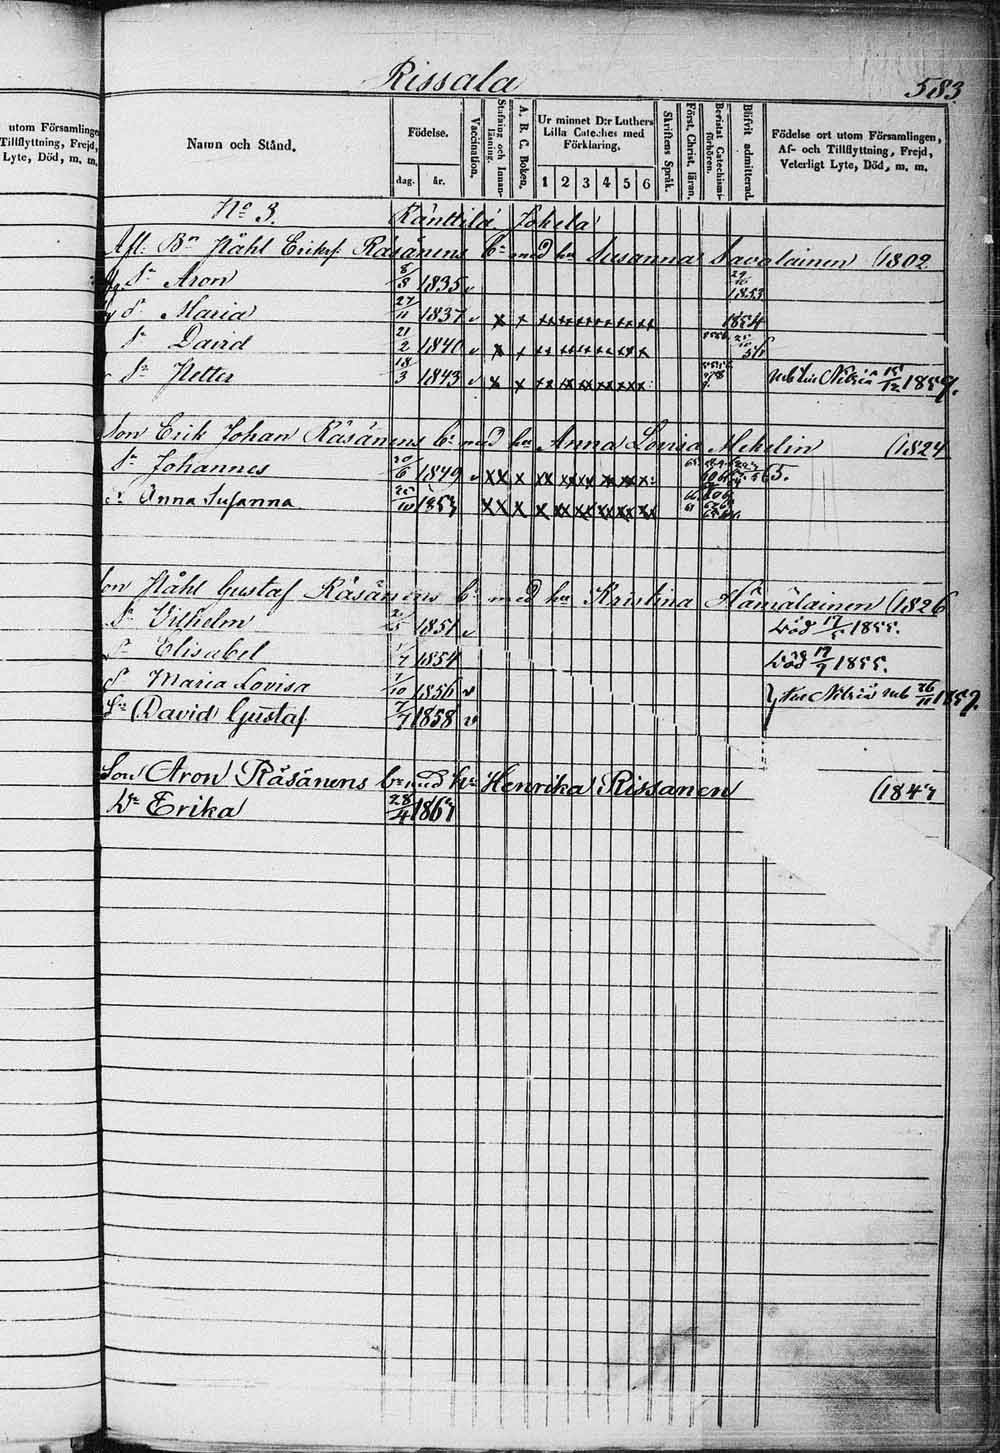 Rissala
583
utom Församlinge
Tillflyttning, Frejd,
Lyte, Död, m. m.
Namn och Stånd.
Födelse.
dag. år.
Vaccination.
Stafning och Innan-
läsning.
A. B. C. Boken.
Ur minnet D:r Luthers
Lilla Cateches med
Förklaring,
1 2 3 4 5 6
Skriftens Språk.
Först. Christ. läran.
Bevistat Catechismi-
förhören.
Blifvit admitterad.
Födelse ort utom Församlingen,
Af- och Tillflyttning, Frejd,
Veterligt Lyte, Död, m. m.
No 3. Ränttilä Jokela
Afl. Bn Påhl Eriksf. Räsänens br med hu Susanna Savolainen (1802
Sn Aron 8/8 1835 v 1853
Maria 27/11 1837 v x x 1854
Sn David 21/2 1840 v x x
Sn Petter 18/3 1843 v x x Nilsiä 15/12 1859.
Son Erik Johan Räsänens br med hu Anna Lovisa Mekelin (1824
Sn Johannes 20/6 1849 v xx x 65.
Anna Susanna 25/10 1853 xx x
Son Påhl Gustaf Räsänens br med hu Kristina Hämäläinen (1826
Sn Vilhelm 2/5 1851 v död 17/5 1855.
Elisabet 1/7 1854 död 17/7 1855.
Maria Lovisa 7/10 1856 v Nilsiä 26/11 1859.
Sn David Gustaf 7/7 1858 v
Son Aron Räsänens br med hu Henrika Rissanen (1847
Dr Erika 28/4 1867